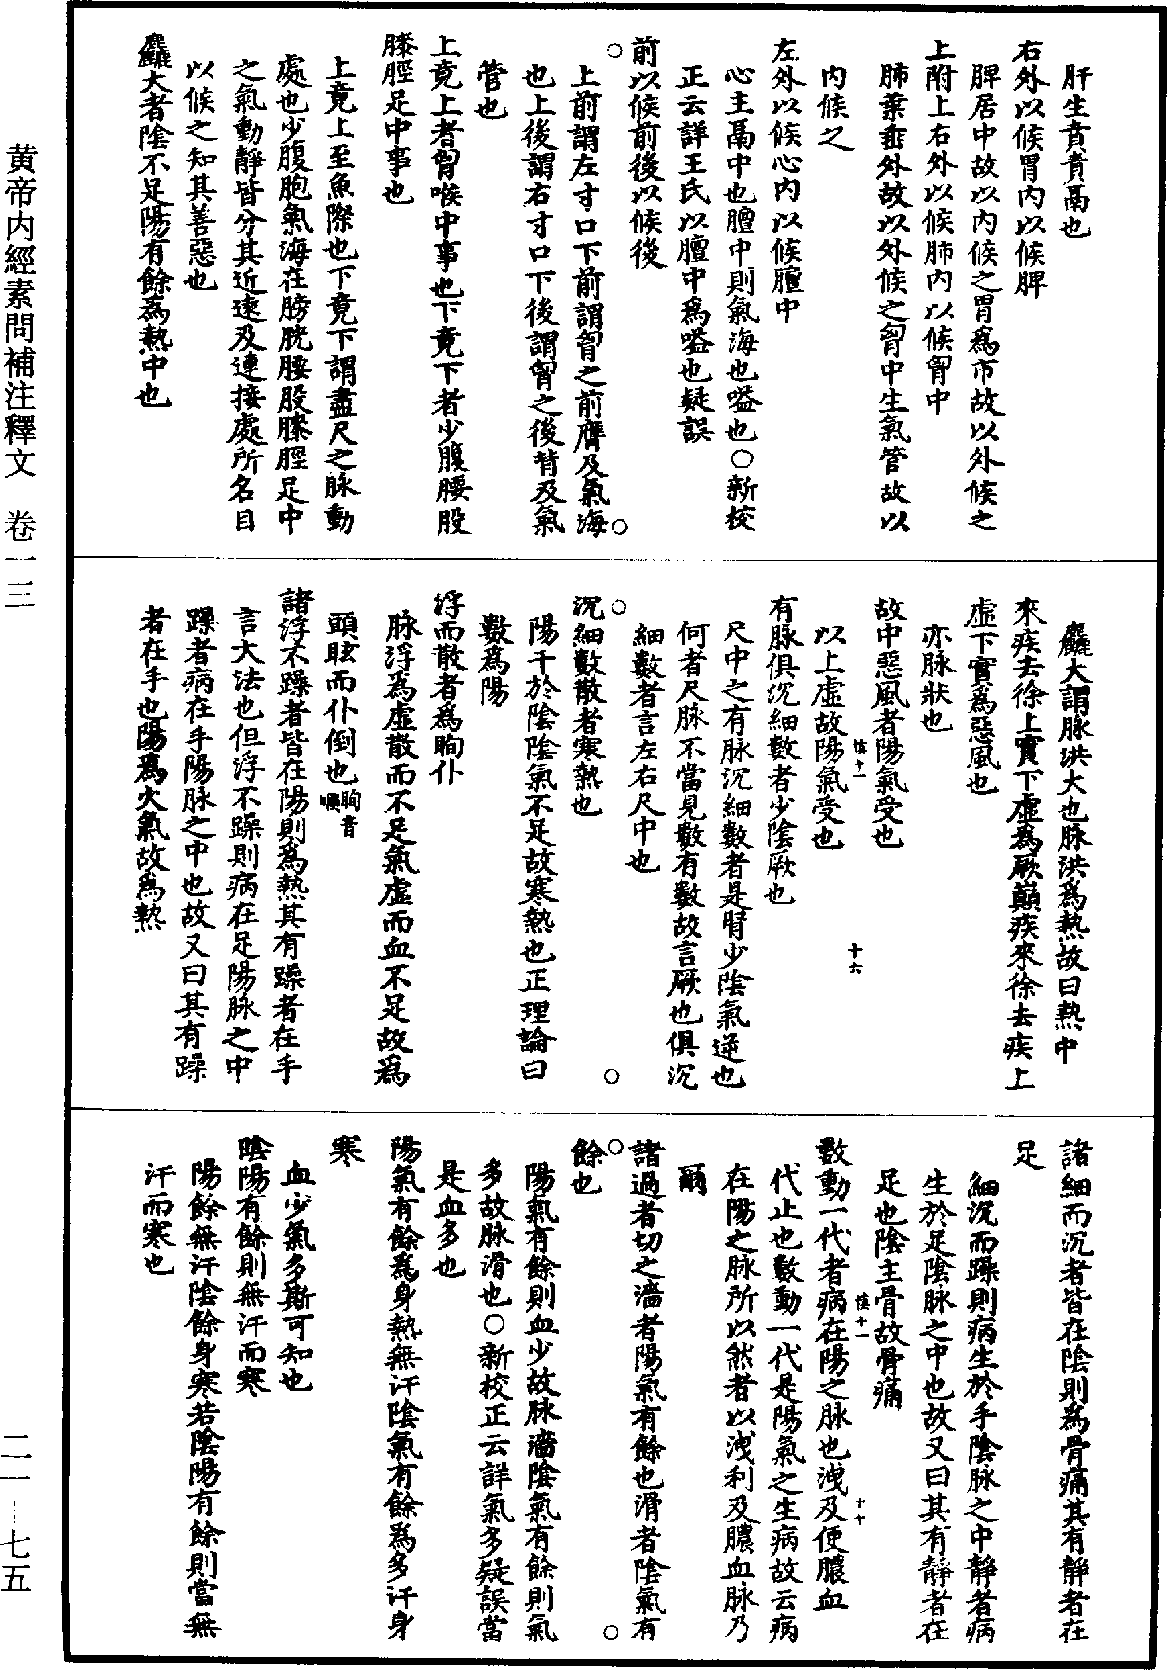 肝生賁賁鬲也
右外以候胃內以候脾
脾居中故以內候之胃爲市故以外候之
上附上右外以候肺內以候胷中
肺葉垂外故以外候之胷中生氣管故以
內候之
左外以候心內以候膻中
心主鬲中也膻中則氣海也嗌也○新校
正云詳王氏以膻中爲嗌也疑誤
前以候前後以候後
上前謂左寸口下前謂胷之前膺及氣海
也上後謂右寸口下後謂胷之後背及氣
管也
上竟上者胷喉中事也下竟下者少腹腰股
膝脛足中事也
上竟上至魚際也下竟下謂盡尺之脉動
處也少腹胞氣海在膀胱腰股膝脛足中
之氣動靜皆分其近遠及連接處所名目
以候之知其善惡也
麤大者陰不足陽有餘爲熱中也
麤大謂脉洪大也脉洪爲熱故曰熱中
來疾去徐上實下虛爲厥巔疾來徐去疾上
虛下實爲惡風也
亦脉狀也
故中惡風者陽氣受也
以上虛故陽氣受也
慎十一
十六
有脉俱沉細數者少陰厥也
尺中之有脉沉細數者是腎少陰氣逆也
何者尺脉不當見數有數故言厥也俱沉
細數者言左右尺中也
沉細數散者寒熱也
陽干於陰陰氣不足故寒熱也正理論曰
數爲陽
浮而散者爲眴仆
脉浮爲虛散而不足氣虛而血不足故爲
頭眩而仆倒也眴音
諸浮不躁者皆在陽則爲熱其有躁者在手
言大法也但浮不躁則病在足陽脉之中
躁者病在手陽脉之中也故又曰其有躁
者在手也陽爲火氣故爲熱
諸細而沉者皆在陰則爲骨痛其有靜者在
足
細沉而躁則病生於手陰脉之中靜者病
生於足陰脉之中也故又曰其有靜者在
足也陰主骨故骨痛
慎十一
十十
數動一代者病在陽之脉也洩及便膿血
代止也數動一代是陽氣之生病故云病
在陽之脉所以然者以洩利及膿血脉乃
爾
諸過者切之濇者陽氣有餘也滑者陰氣有
餘也
陽氣有餘則血少故脉濇陰氣有餘則氣
多故脉滑也○新校正云詳氣多疑誤當
是血多也
陽氣有餘爲身熱無汗陰氣有餘爲多汗身
寒
血少氣多斯可知也
陰陽有餘則無汗而寒
陽餘無汗陰餘身寒若陰陽有餘則當無
汗而寒也
黃帝內經素問補注釋文　卷一三
二一—七五